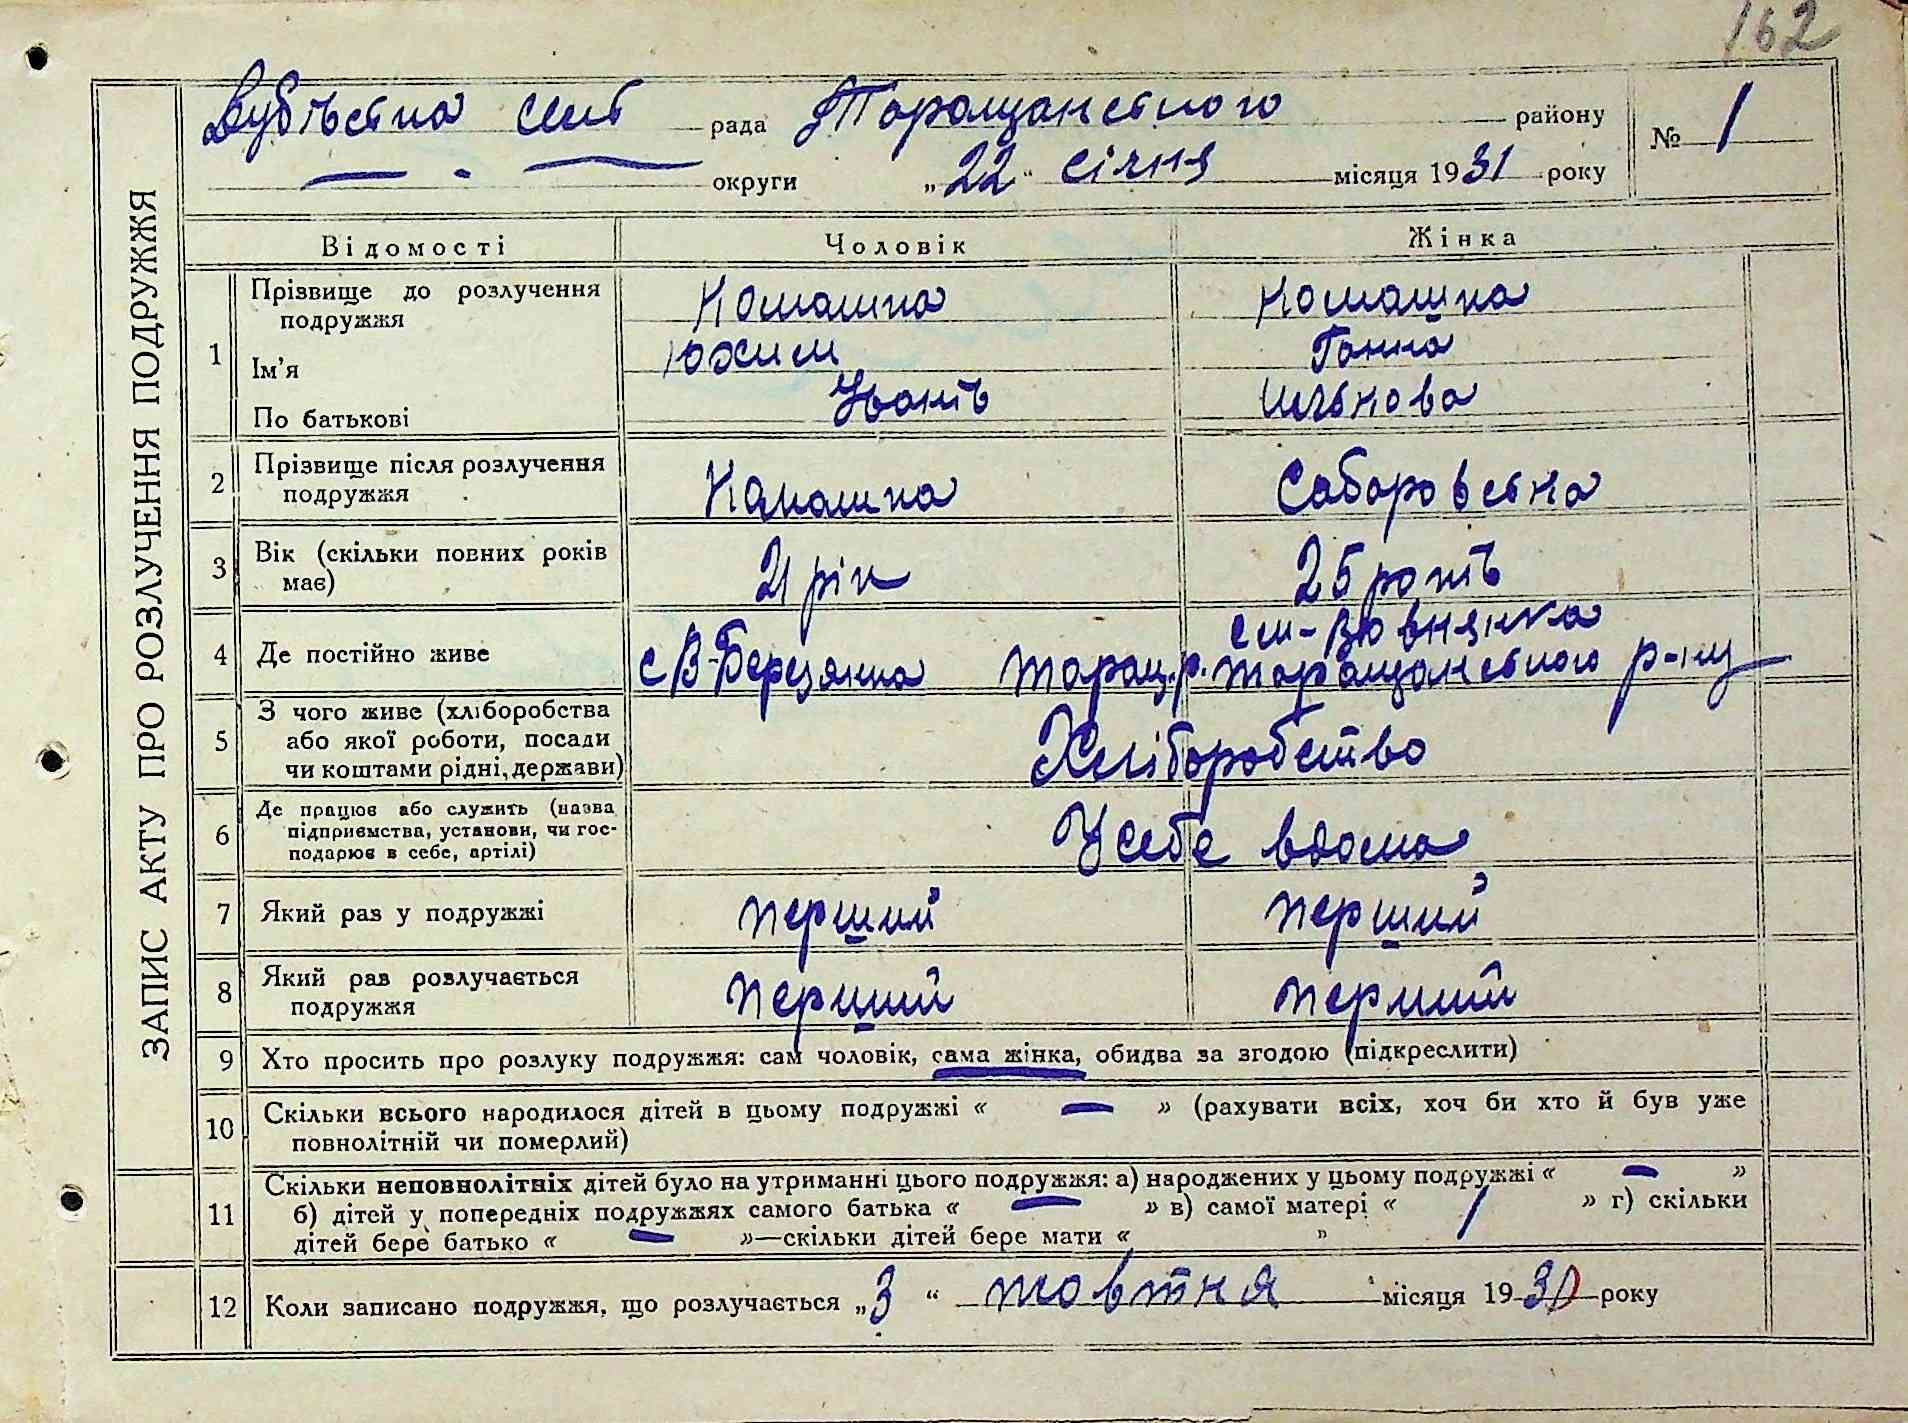 162
Дубівська сел рада Таращанського району
№ 1
округи „22“ січня місяця 1931 року
ЗАПИС АКТУ ПРО РОЗЛУЧЕННЯ ПОДРУЖЖЯ
Відомості Чоловік Жінка
1 Прізвище до розлучення подружжя Комашка Комашка
Ім'я Юхим Ганна
По батькові Іванів
2 Прізвище після розлучення подружжя Комашка Саборовська
3 Вік (скільки повних років має) 21 рік 25 років
4 Де постійно живе с В-Березянка Таращ. р. Таращанського р-ну
5 З чого живе (хліборобства або якої роботи, посади чи коштами рідні, держави) Хліборобство
6 Де працює або служить (назва підприємства, установи, чи господарює в себе, артілі) У себе вдома
7 Який раз у подружжі перший перший
8 Який раз розлучається подружжя перший перший
9 Хто просить про розлуку подружжя: сам чоловік, сама жінка, обидва за згодою (підкреслити)
10 Скільки всього народилося дітей в цьому подружжі « — » (рахувати всіх, хоч би хто й був уже
повнолітній чи померлий)
11 Скільки неповнолітніх дітей було на утриманні цього подружжя: а) народжених у цьому подружжі « — »
б) дітей у попередніх подружжях самого батька « — » в) самої матері « 1 » г) скільки
дітей бере батько « — »—скільки дітей бере мати « »
12 Коли записано подружжя, що розлучається „3“ жовтня місяця 1930 року